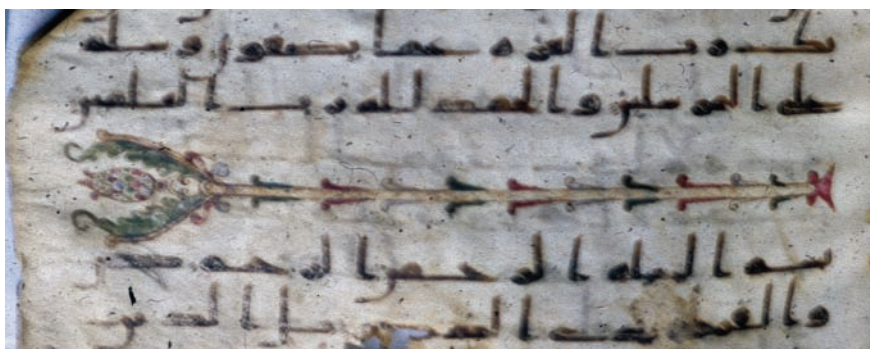 بك رب العزه عما يصفون وسلم
على المرسلين والحمد لله رب العلمين
بسم الله الرحمن الرحيم ص
والقرن ذى الذكر بل الذين